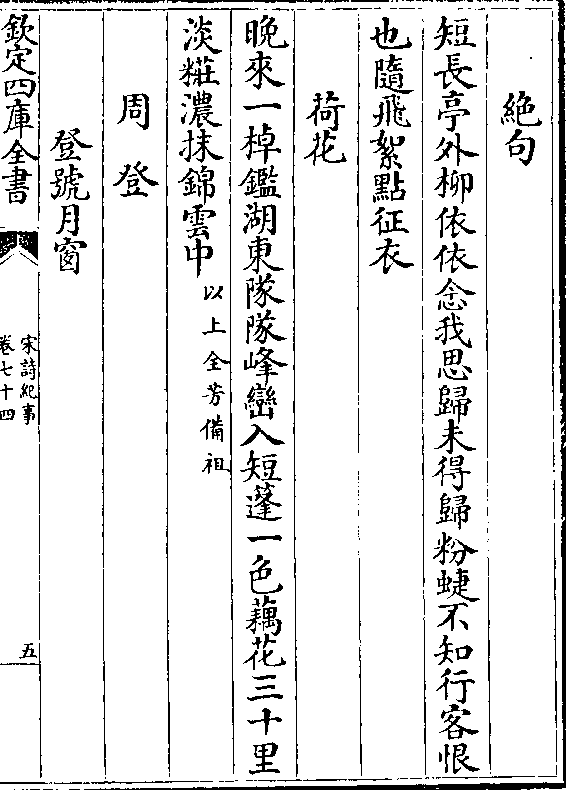 絶句
短長亭外柳依依念我思歸未得歸粉蜨不知行客恨
也隨飛絮點征衣
荷花
晩來一棹鑑湖東隊隊峰巒入短蓬一色藕花三十里
淡糚濃抹錦雲中以上全芳備祖
周登
登號月窗
欽定四庫全書
宋詩紀事
卷七十四
五